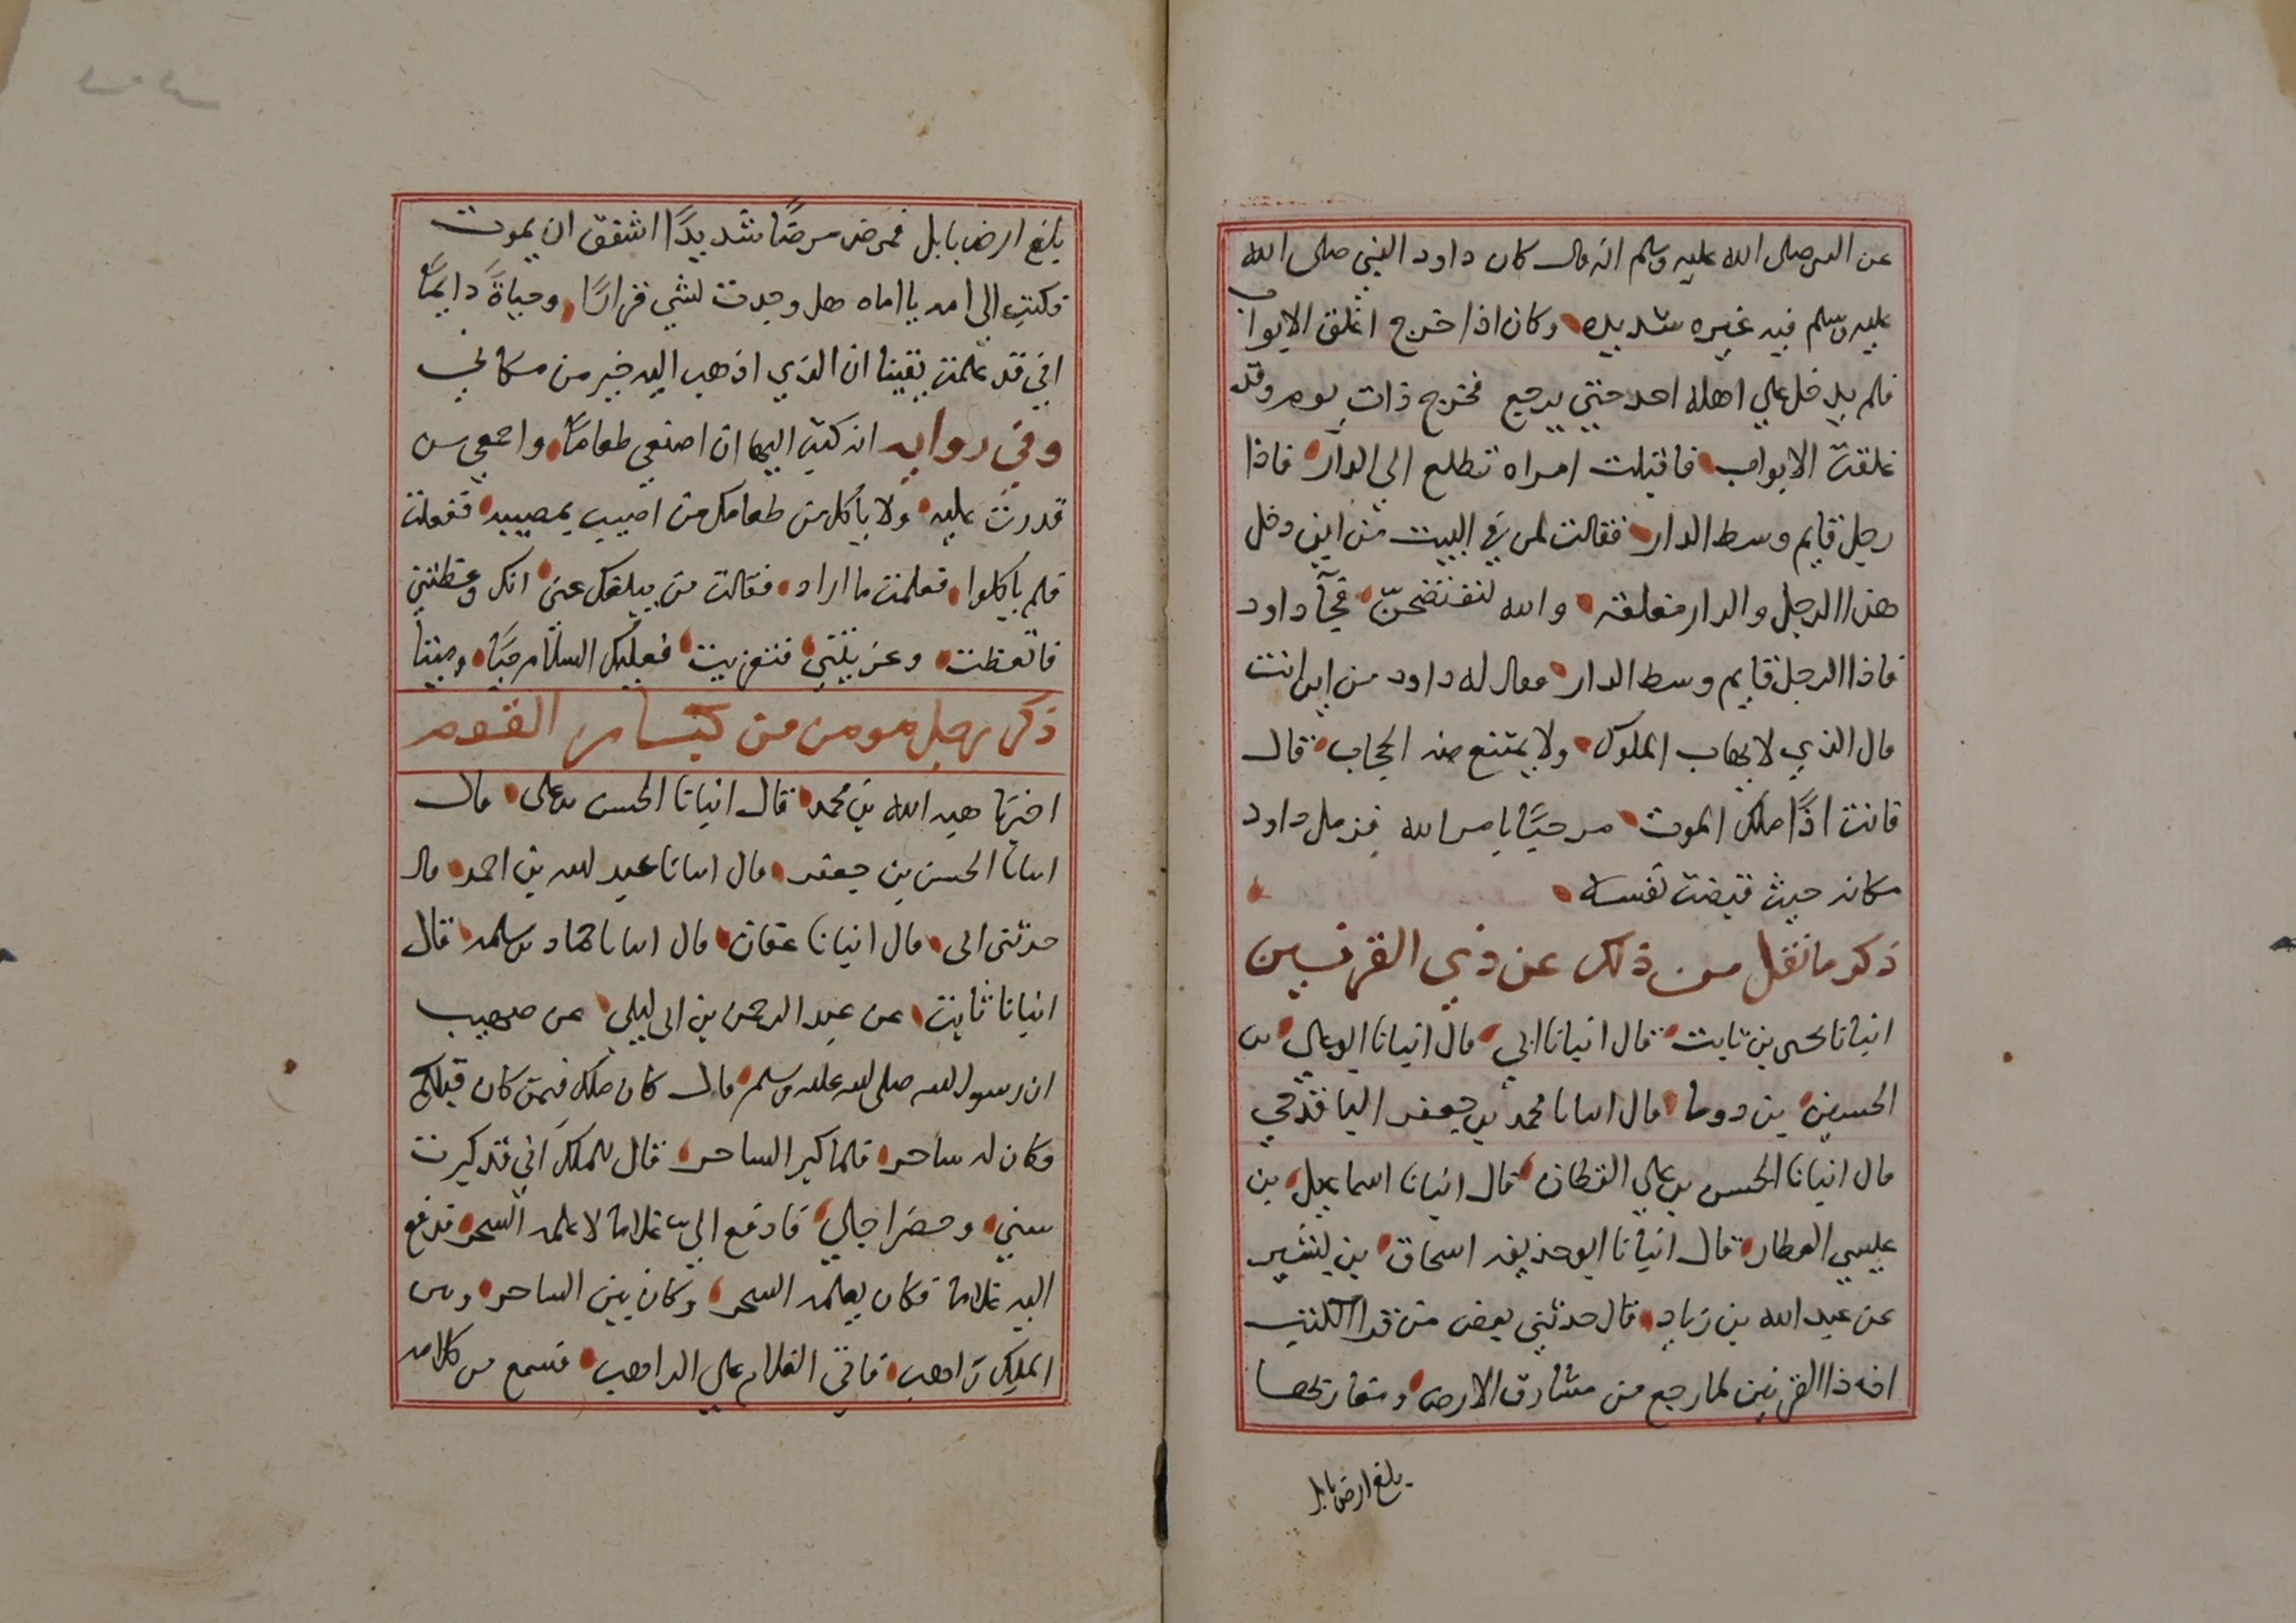 عن النبى صلى الله عليه وسلم انه قال كان داود النبي صلى الله
عليه وسلم فيه غيره شديده وكان اذا خرج اغلق الابواب
فلم يدخل علي اهله احد حتي يرجع فخرج ذات يوم وقد
غلقت الابواب فاقبلت امراه تطلع الي الدار فاذا
رجل قايم وسط الدار فقالت لمن في البيت من اين دخل
هذا الرجل والدار مغلقه والله لنفتضحنّ فجآ داود
فاذا الرجل قايم وسط الدار فقال له داود من اين انت
قال الذي لا يهاب الملوك ولا يمتنع منه الحجاب قال
فانت اذًا ملك الموت مرحبًا بامر الله فزمل داود
مكانه حيث قبضت نفسه
ذكر ما نقل من ذلك عن ذي القرنين
انبانا يحيى بن ثابت قال انبانا ابي قال انبانا ابو علي بن
الحسين بن دوما قال انبانا محمد بن جعفر الباقرحي
قال انبانا الحسن بن علي القطان قال انبانا اسماعيل بن
عيسي العطار قال انبانا ابو حذيفه اسحاق بن بشير
عن عبد الله بن زياد قال حدثني بعض من قرا الكتب
ان ذا القرنين لما رجع من مشارق الارض ومغاربها
يلغ ارض بابل
يلغ ارض بابل فمرض مرضًا شديدًا اشفق ان يموت
فكتب الي امه يا اماه هل وجدت لشي قرارًا وحياةً دايمًا
اني قد علمت يقينا ان الذي اذهب اليه خير من مكاني
وفي روايه انه كتب اليها ان اصنعي طعامًا واجمعي من
قدرت عليه ولا ياكل من طعامك من اصيب بمصيبه ففعلت
فلم ياكلوا فعلمت ما اراد فقالت من يبلغك عني انك وعظتني
فاتعظت وعزيتني فتعزيت فعليك السلام حيًا وميتا
ذكر رجل مومن من كبار القوم
اخبرنا هبه الله بن محمد قال انبانا الحسن بن على قال
انبانا الحسن بن جعفر قال انبانا عبد الله بن احمد قال
حدثنى ابى قال انبانا عفان قال انبانا حماد بن سلمه قال
انبانا ثابت عن عبد الرحمن بن ابى ليلي عن صهيب
ان رسول الله صلى الله عليه وسلم قال كان ملك فيمن كان قبلكم
وكان له ساحر فلما كبر الساحر قال للملك اني قد كبرت
سني وحضر اجلي فادفع الي غلاما لاعلمه السحر فدفع
اليه غلاما فكان يعلمه السحر وكان بين الساحر وبين
الملك راهب فاتي الغلام علي الراهب فسمع من كلامه